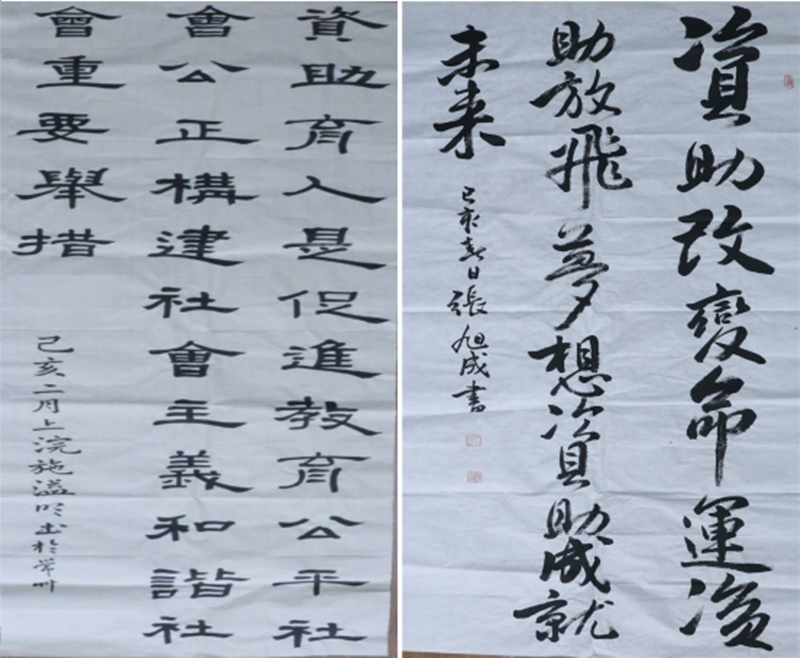 資助育人是促進教育公平社
會公正構建社會主義和諧社
會重要舉措
己亥二月上浣施溢明书於常州
資助改變命運資
助放飛夢想資助成就
未来
己亥春日張旭成書